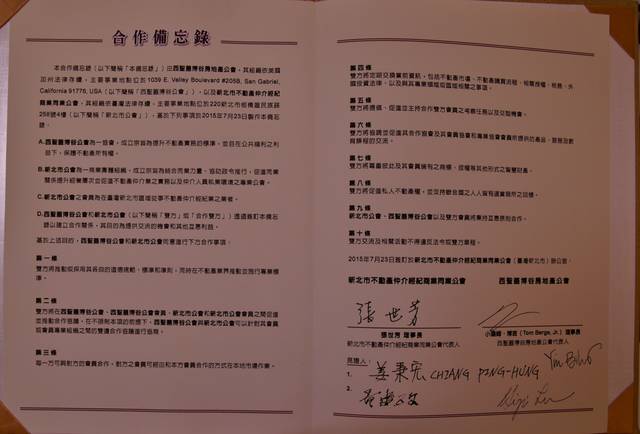 合作備忘錄
本合作備忘錄(以下簡稱「本備忘錄」)由西聖蓋博谷房地產公會,其組織依美國
加州法律存續,主要事業地點位於1039 E. Valley Boulevard #205B, San Gabriel,
California 91776, USA(以下簡稱「西聖蓋博谷公會」),以及新北市不動產仲介經紀
商業同業公會,其組織依臺灣法律存續,主要事業地點位於220新北市板橋區民族路
258號4樓(以下簡稱「新北市公會」),基於下列事項於2015年7月23日製作本備忘
錄:
A.西聖蓋博谷公會為一協會,成立宗旨為提升不動產實務的標準,並旨在公共福利之利
益下,保護不動產所有權。
B.新北市公會為一商業團體組織,成立宗旨為結合同業力量、協助政令推行,促進同業
關係提升經營層次並促進不動產仲介業之實務以及仲介人員執業環境之專業公會。
C.新北市公會之會員為在臺灣新北市區域從事不動產仲介經紀業之業者。
D.西聖蓋博谷公會和新北市公會(以下簡稱「雙方」或「合作雙方」)透過簽訂本備忘
錄以建立合作關係,其目的為提供交流的機會和其他互惠利益。
基於上述目的,西聖蓋博谷公會和新北市公會同意進行下方合作事項:
第一條
雙方將推動或採用其各自的道德規範、標準和準則,同時在不動產業界推動並施行專業標
準。
第二條
雙方將在西聖蓋博谷公會、西聖蓋博谷公會會員、新北市公會和新北市公會會員之間促進
並推動合作協議。在不限制本項的前提下,西聖蓋博谷公會與新北市公會可以針對其會員
或會員專業組織之間的雙邊合作協議進行協商。
第三條
每一方可與對方的會員合作,對方之會員可經由和本方會員合作的方式在本地市場作業。
第四條
雙方將定期交換業務資訊,包括不動產市場、不動產購買流程、相關授權、稅務、外
國投資法律,以及與其專業領域或區域相關之事項。
第五條
雙方將提倡、促進並主持合作雙方會員之考察任務以及交際機會。
第六條
雙方將協調並促進其合作協會及其會員協會和專業協會會員所提供的產品、服務及教
育課程的交流。
第七條
雙方將尊重彼此及其會員擁有之商標、版權等其他形式之智慧財產。
第八條
雙方將促進私人不動產權,並支持聯合國之人人皆有適當居所之目標。
第九條
新北市公會、西聖蓋博谷公會以及雙方會員將秉持互惠原則合作。
第十條
雙方交流及相關活動不得違反法令或雙方章程。
2015年7月23日簽訂於新北市不動產仲介經紀商業同業公會(臺灣新北市)辦公室。
新北市不動產仲介經紀商業同業公會 西聖蓋博谷房地產公會
張世芳
張世芳 理事長 小湯姆·博吉 (Tom Berge, Jr.) 理事長
新北市不動產仲介經紀商業同業公會代表人 西聖蓋博谷房地產公會代表人
見證人:
1. 姜秉宏 CHIANG PING-HUNG
2.